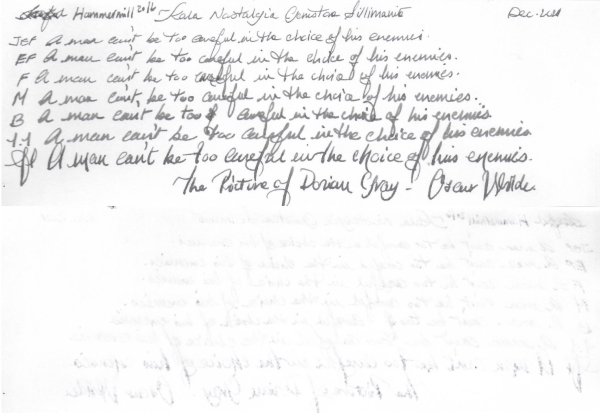 Hammermill 20lb - Kala Nostalgia Cometas Sillimanita Dec. 2021
JEF A man can't be too careful in the choice of his enemies.
EF A man can't be too careful in the choice of his enemies.
F A man can't be too careful in the choice of his enemies.
M A man can't, be too careful in the choice of his enemies.
B A man can't be too careful in the choice of his enemies
1.1 A man can't be too careful in the choice of his enemies
A man can't be too careful in the choice of his enemies.
The Picture of Dorian Gray - Oscar Wilde.